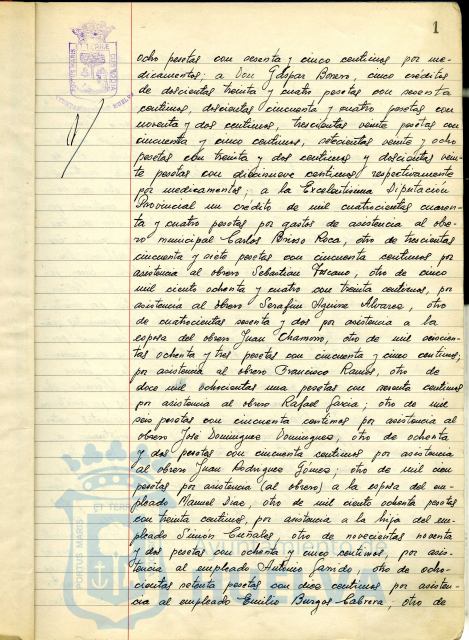 1
ocho pesetas con sesenta y cinco centimos por me-
dicamentos; a Don Gaspar Borrero, cinco créditos
de doscientas treinta y cuatro pesetas con sesenta
centimos, doscientas cincuenta y cuatro pesetas con
noventa y dos centimos, trescientas veinte pesetas con
cincuenta y cinco centimos, setecientas veinte y ocho
pesetas con treinta y dos centimos y doscientas vein-
te pesetas con diecinueve centimos respectivamente
por medicamentos; a la Excelentisima Diputación
Provincial un crédito de mil cuatrocientas cuaren-
ta y cuatro pesetas por gastos de asistencia al obre-
ro municipal Carlos Roca, otro de trescientas
cincuenta y siete pesetas con cincuenta centimos por
asistencia al obrero Sebastian Toscano, otro de cinco
mil ciento ochenta y cuatro con treinta centimos, por
asistencia al obrero Serafin Aguirre Alvarez, otro
de cuatrocientas sesenta y dos por asistencia a la
esposa del obrero Juan Chamorro, otro de mil seiscien-
tas ochenta y tres pesetas con cincuenta y cinco centimos,
por asistencia al obrero Francisco Ramos, otro de
doce mil ochocientas una pesetas con sesenta centimos
por asistencia al obrero Rafael Garcia; otro de mil
seis pesetas con cincuenta centimos por asistencia al
obrero Jose Dominguez Dominguez, otro de ochenta
y dos pesetas con cincuenta centimos por asistencia
al obrero Juan Rodriguez Gómez; otro de mil cien
pesetas por asistencia (al obrero) a la esposa del em-
pleado Manuel Diaz, otro de mil ciento ochenta pesetas
con treinta centimos, por asistencia a la hija del em-
pleado Simón Cañales, otro de novecientas noventa
y dos pesetas con ochenta y cinco centimos, por asis-
tencia al empleado Antonio Garrido, otro de ocho-
cientas setenta pesetas con doce centimos por asisten-
cia al empleado Emilio Burgos Cabrera, otro de
PORTUS MARIS
ET TERRE